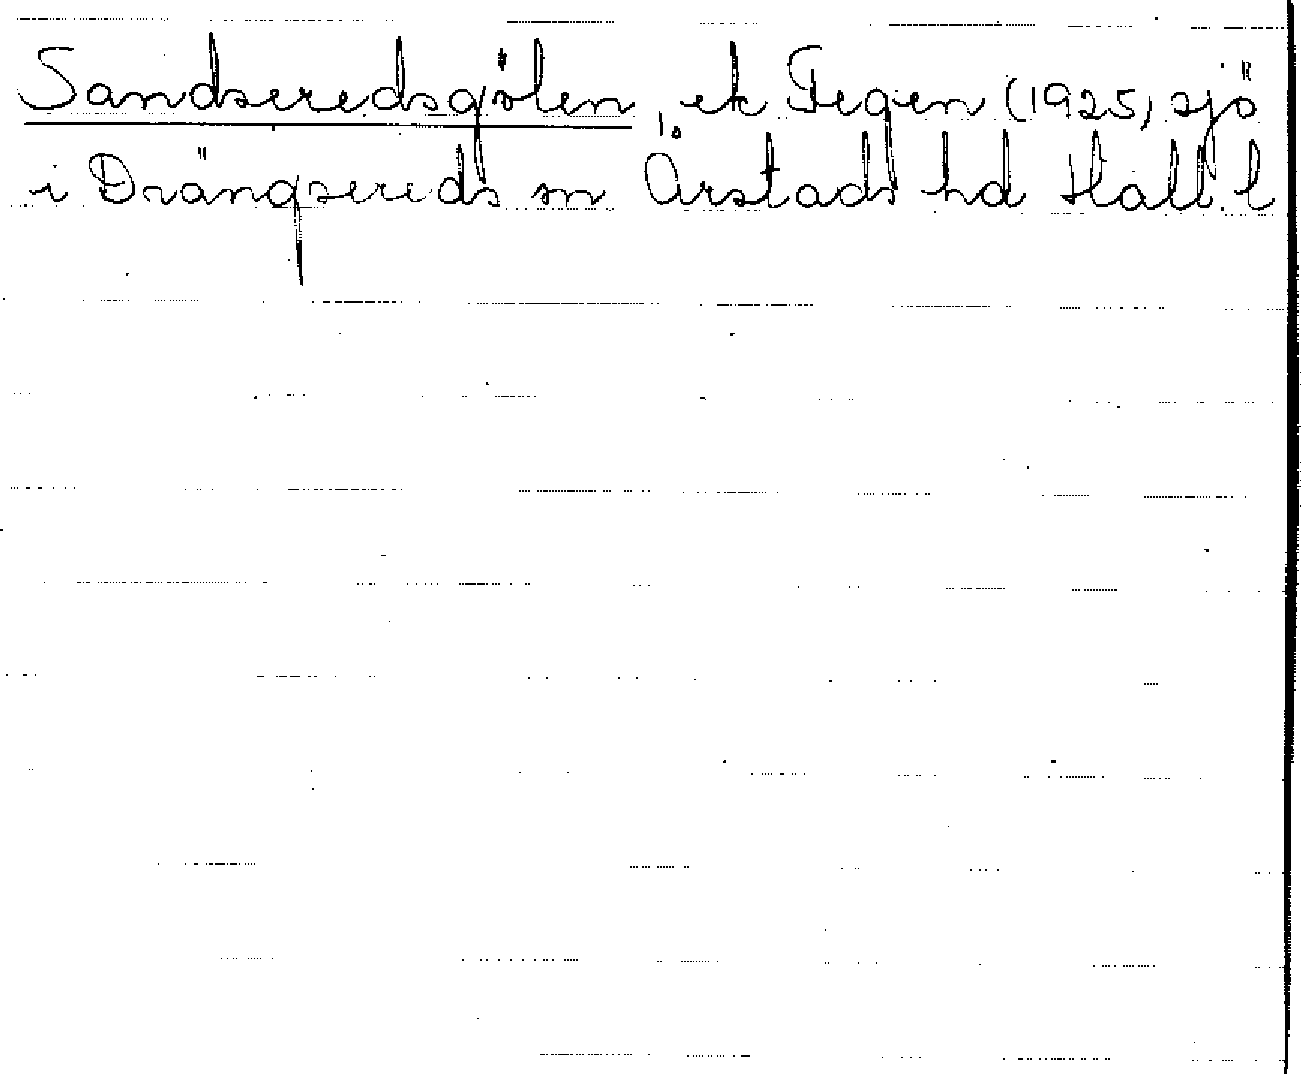 Sandseredsgölen, ek Fegen (1925, sjö
i Drängsereds sn Årstads hd Hall. l